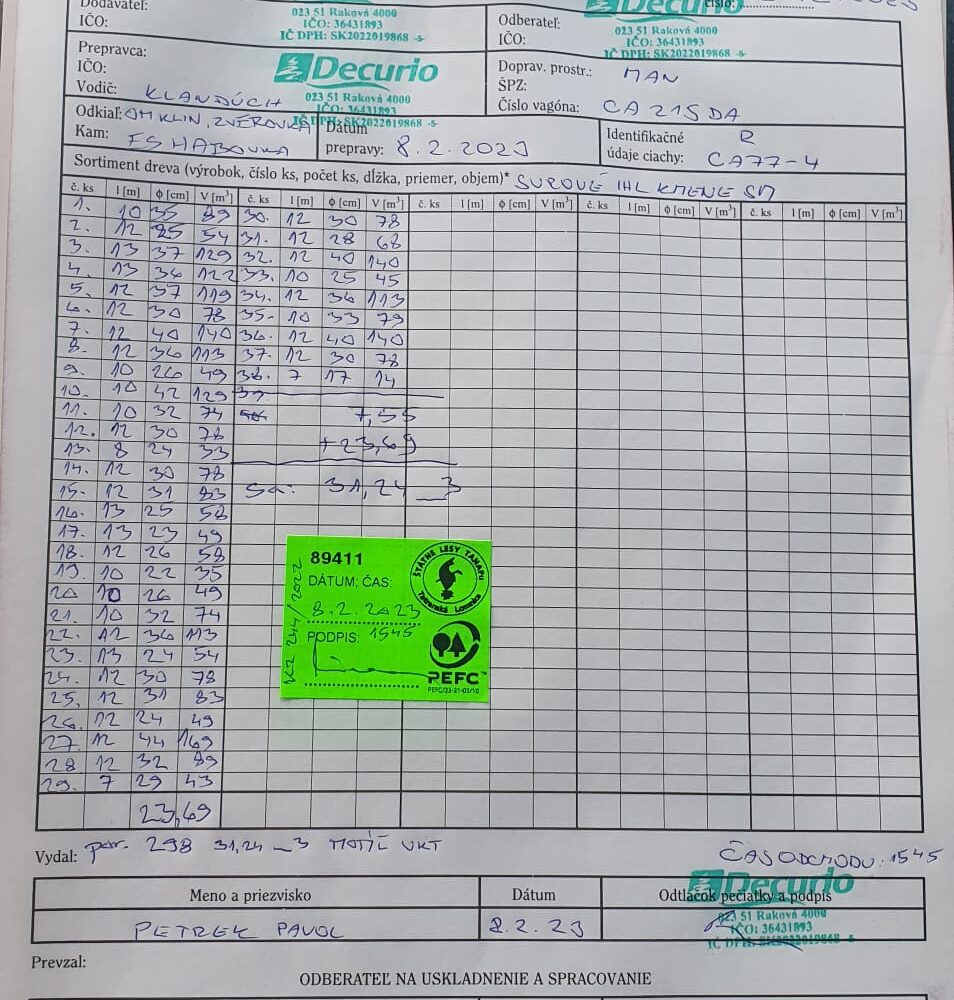 Dodávateľ:
023 51 Raková 4000
IČO: 36431893
IČ DPH: SK2022019868 -5-
Decurio
číslo:
Odberateľ:
IČO:
023 51 Raková 4000
IČO: 36431893
IČ DPH: SK2022019868 -5-
Prepravca:
IČO:
Vodič: KLANDÚCH
Decurio
023 51 Raková 4000
IČO: 36431893
IČ DPH: SK2022019868 -5-
Doprav. prostr.: MAN
ŠPZ:
Číslo vagóna: CA 215 DA
Odkiaľ: OM KLIN, ZVEROVKA
Kam: ES HABOVKA
Dátum
prepravy: 8.2.2023
Identifikačné R
údaje ciachy: CA77-4
Sortiment dreva (výrobok, číslo ks, počet ks, dĺžka, priemer, objem)* SUROVÉ IHL KMENE SM
č. ks l [m] ϕ [cm] V [m³] č. ks l [m] ϕ [cm] V [m³] č. ks l [m] ϕ [cm] V [m³] č. ks l [m] ϕ [cm] V [m³] č. ks l [m] ϕ [cm] V [m³]
1. 10 35 89 30. 12 30 78
2. 12 25 54 31. 12 28 68
3. 13 37 129 32. 12 40 140
4. 13 36 122 33. 10 25 45
5. 12 37 119 34. 12 36 113
6. 12 30 78 35. 10 33 79
7. 12 40 140 36. 12 40 140
8. 12 36 113 37. 12 30 78
9. 10 26 49 38. 7 17 14
10. 10 42 129 39
11. 10 32 74 7,55
12. 12 30 78 +23,69
13. 8 24 33
14. 12 30 78
15. 12 31 83 Sa: 31,24 _3
16. 13 25 58
17. 13 23 49
18. 12 26 58
19. 10 22 35
20 10 26 49
21. 10 32 74
22. 12 36 113
23. 13 24 54
24. 12 30 78
25. 12 31 83
26. 12 24 49
27. 12 44 169
28 12 32 89
29. 7 29 43
23,69
89411
DÁTUM; ČAS:
8.2.2023
PODPIS: 1545
KZ 244/2022
ŠTÁTNE LESY TANAPu
Tatranská Lomnica
PEFC™
PEFC/23-21-03/10
Vydal: por. 298 31,24 _3 MOTÍL VKT
ČAS ODCHODU: 1545
Meno a priezvisko Dátum Odtlačok pečiatky a podpis
PETREK PAVOL 8.2.23
Decurio
023 51 Raková 4000
IČO: 36431893
IČ DPH: SK2022019868 -5-
Prevzal:
ODBERATEĽ NA USKLADNENIE A SPRACOVANIE